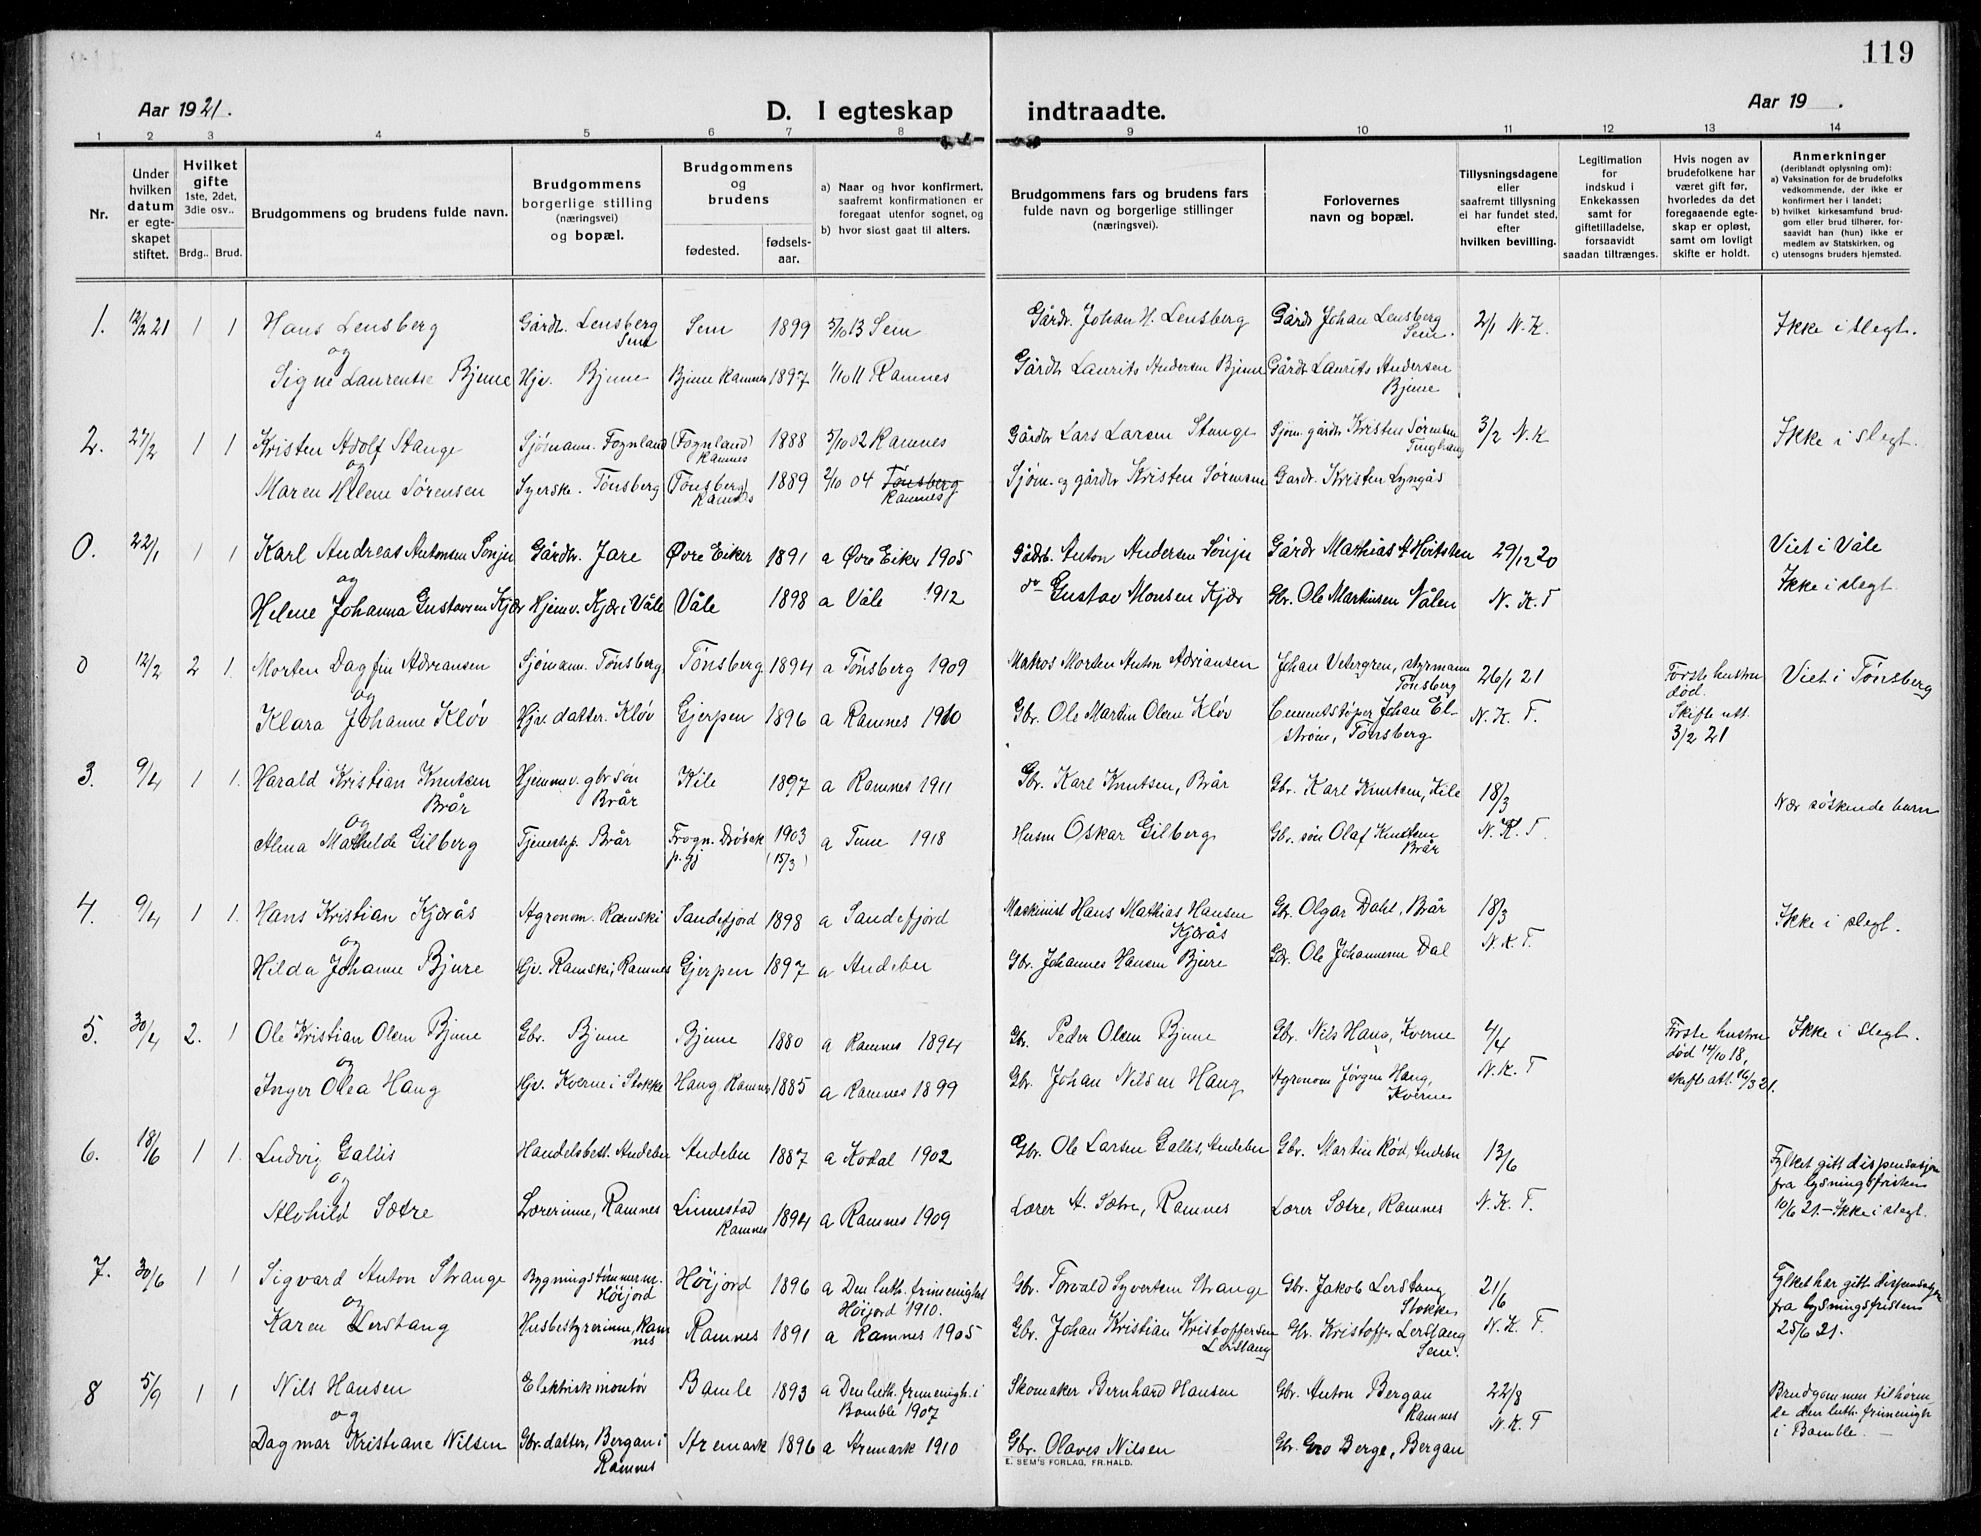 119
Aar 1921.
D. I egteskap indtraadte.
Aar 19 .
1 2 3 4 5 6 7 8 9 10 11 12 13 14
Nr.
Under hvilken datum er egte-skapet stiftet.
Hvilket gifte 1ste, 2det, 3die osv..
Brdg.. Brud.
Brudgommens og brudens fulde navn.
Brudgommens borgerlige stilling (næringsvei) og bopæl.
Brudgommens og brudens
fødested. fødsels-aar.
a) Naar og hvor konfirmert, saafremt konfirmationen er foregaat utenfor sognet, og
b) hvor sidst gaat til alters.
Brudgommens fars og brudens fars fulde navn og borgerlige stillinger (næringsvei).
Forlovernes navn og bopæl.
Tillysningsdagene eller saafremt tillysning ei har fundet sted, efter hvilken bevilling.
Legitimation for indskud i Enkekassen samt for giftetilladelse, forsaavidt saadan tiltrænges.
Hvis nogen av brudefolkene har været gift før, hvorledes da det foregaaende egte-skap er opløst, samt om lovligt skifte er holdt.
Anmerkninger (deriblandt oplysning om):
a) Vaksination for de brudefolks vedkommende, der ikke er konfirmert her i landet;
b) hvilket kirkesamfund brud-gom eller brud tilhører, for-saavidt han (hun) ikke er medlem av Statskirken, og
c) utensogns bruders hjemsted.
1. 12/2 21 1 1 Hans Lensberg Gårdbr. Lensberg Sem Sem 1899 5/10 13 Sem Gårdbr. Johan H. Lensberg Gårdbr Johan Lensberg Sem. 2/1 N.K. Ikke i slegt.
og
Signe Laurentse Bjune Hjv. Bjune Bjune Ramnes 1897 1/10 11 Ramnes Gårdbr Laurits Andersen Bjune Gårdbr Laurits Andersen Bjune
2. 27/2 1 1 Kristen Adolf Stange Sjømann. Fognland (Fognland) Ramnes 1888 5/10 02 Ramnes Gårdbr Lars Larsen Stange Sjøm. gårdbr Kristen Sørensen 3/2 N.K Ikke i slegt.
og
Maren Helene Sørensen Syerske. Tønsberg (Tønsberg) Ramnes 1889 2/10 04 Tønsberg Ramnes Sjøm. og gårdbr Kristen Sørensen Gardbr. Kristen Lyngås
0. 22/1 1 1 Karl Andreas Antonsen Gårdbr. Jare Øvre Eiker 1891 a Øvre Eiker 1905 Gårdb. Anton Andersen Gårdbr Mathias 29/12 20 Viet i Våle
og
Helene Johanna Gustavsen Kjær Hjemv. Kjær i Våle Våle 1898 a Våle 1912 do Gustav Monsen Kjær Gbr. Ole Martinsen Vålen N. K. T Ikke i slegt.
0 12/2 2 1. Morten Dagfin Adriansen Sjømann. Tønsberg. Tønsberg. 1894 a Tønsberg 1909 Matros Morten Anton Adriansen Johan Vetergren, styrmann Tønsberg 26/1 21 Første hustru død. Skifte utt. 3/2 21 Viet i Tønsberg
og
Klara Johanne Kløv Hjv datter. Kløv Gjerpen 1896 a Ramnes 1910 Gbr. Ole Martin Olsen Kløv Cementstøper Johan El-strøm, Tønsberg N. K. T.
3. 9/4 1 1. Harald Kristian Knutsen Brår Hjemmev. gbr søn Brår Kile 1897 a Ramnes 1911 Gbr. Karl Knutsen, Brår Gbr. Karl Knutsen, Kile 18/3 Nær søskende barn
og
Alma Mathilde Gilberg Tjenestep. Brår Frogn. Drøbak p. gj 1903 (15/3) a Tune 1918 Husm Oskar Gilberg Gbr. søn Olaf Knutsen Brår N. K. T.
4. 9/4 1 1. Hans Kristian Kjærås Agronom. Ramski Sandefjord 1898 a Sandefjord Maskinist Hans Mathias Hansen Kjærås Gbr. Olgar Dahl, Brår 18/3 Ikke i slegt.
og
Hilda Johanne Bjure Hjv. Ramski, Ramnes Gjerpen 1897 a Andebu Gbr. Johannes Hansen Bjure Gbr. Ole Johannesen Dal N. K. T.
5. 30/4 2. 1 Ole Kristian Olsen Bjune Gbr. Bjune Bjune 1880 a Ramnes 1894 Gbr. Peder Olsen Bjune Gbr. Nils Haug, Kverne 4/4 Første hustru død 14/10 18, skifte att. 16/3 21. Ikke i slegt.
og
Inger Olea Haug Hjv. Kverne i Stokke Haug Ramnes 1885 a Ramnes 1899 Gbr. Johan Nilsen Haug Agronom Jørgen Haug, Kverne N. K. T
6. 18/6 1 1. Ludvig Gallis Handelsbest. Andebu Andebu 1887 a Kodal 1902 Gbr. Ole Larsen Gallis, Andebu Gbr. Martin Rød, Andebu 13/6 Fylket gitt dispensasjon fra lysningsfristen
og
Alvhild Sætre Lærerinne, Ramnes Linnestad Ramnes 1894 a Ramnes 1909 Lærer A. Sætre, Ramnes Lærer Sætre, Ramnes N. K. T. 10/6 21. – Ikke i slegt.
7. 30/6 1 1 Sigvard Anton Strange Bygningstømmerm. Høijord Høijord 1896 a Den luth. frimenighet Høijord 1910. Gbr. Torvald Syvertsen Strange Gbr. Jakob Lerstang Stokke 21/6 Fylket har gitt dispensasjon fra lysningsfristen 25/6 21.
og
Karen Lerstang Husbestyrerinne, Ramnes Ramnes 1891 a Ramnes 1905 Gbr. Johan Kristian Kristoffersen Lerstang Gbr. Kristoffer Lerstang Sem. N. K. T.
8 5/9 1 1 Nils Hansen Elektrisk montør Bamle 1893 a Den luth. frimenigh. i Bamble 1907 Skomaker Bernhard Hansen Gbr. Anton Bergan Ramnes 22/8 Brudgommen tilhøren-de den luth. frimenigh i Bamble. –
og
Dagmar Kristiane Nilsen Gbr. datter, Bergan i Ramnes Aremark 1896 a Aremark 1910 Gbr. Olaves Nilsen Gbr. Gro Berge, Bergan N. K. T
E. SEM'S FORLAG, FR.HALD.